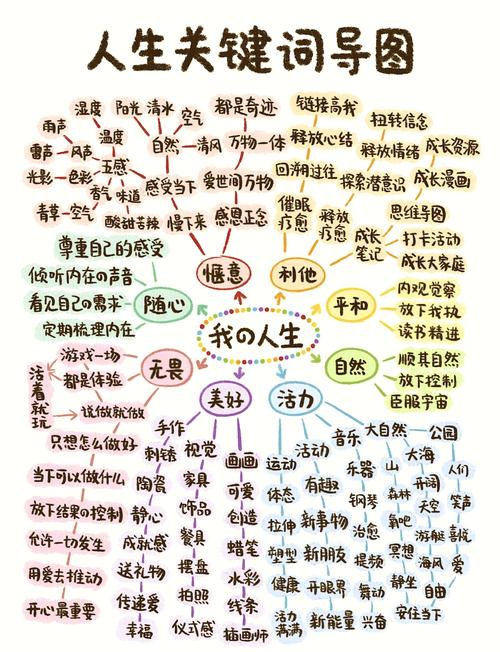 人生关键词导图
我の人生
惬意
五感
温度
湿度
雨声
雷声
风声
光影
色彩
香气
青草
空气
味道
酸甜苦辣
自然
阳光
清水
空气
清风
感受当下
慢下来
都是奇迹
万物一体
爱世间万物
感恩正念
利他
链接高我
释放心结
回溯过往
催眠
疗愈
扭转信念
释放情绪
探索潜意识
释放
疗愈
成长
笔记
成长资源
成长漫画
思维导图
打卡活动
成长大家庭
随心
尊重自己的感受
倾听内在の声音
看见自己の需求
定期梳理内在
平和
内观觉察
放下我执
读书精进
自然
顺其自然
放下控制
臣服宇宙
无畏
游戏一场
都是体验
活着就玩
说做就做
只想怎么做好
当下可以做什么
放下结果の控制
允许一切发生
用爱去推动
开心最重要
美好
手作
刺绣
陶瓷
静心
成就感
送礼物
传递爱
幸福
视觉
家具
饰品
餐具
摆盘
拍照
仪式感
画画
可爱
创造
蜡笔
水彩
线条
插画师
活力
运动
体态
拉伸
塑型
健康
活力
满满
活动
有趣
新事物
新朋友
开眼界
新能量
音乐
乐器
钢琴
治愈
提频
舞动
兴奋
大自然
山
森林
氧吧
冥想
静坐
安住当下
大海
开阔
天空
游艇
海风
自由
公园
人们
笑声
喜悦
爱